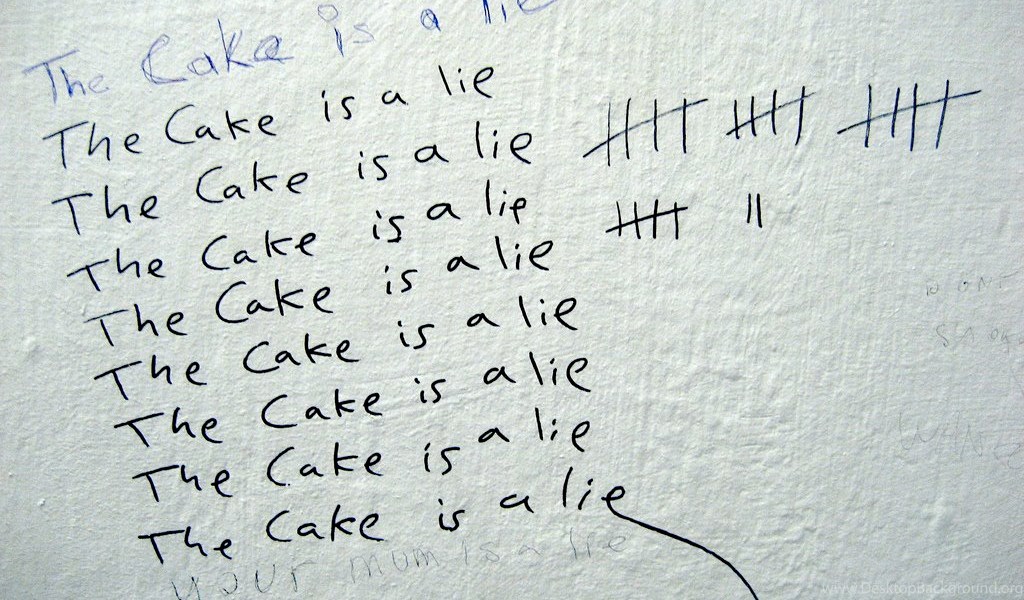 The Cake is a lie
The Cake is a lie
The Cake is a lie
The Cake is a lie
The Cake is a lie
The Cake is a lie
The Cake is a lie
The Cake is a lie
The Cake is a lie
your mum is a lie
www.DesktopBackground.org